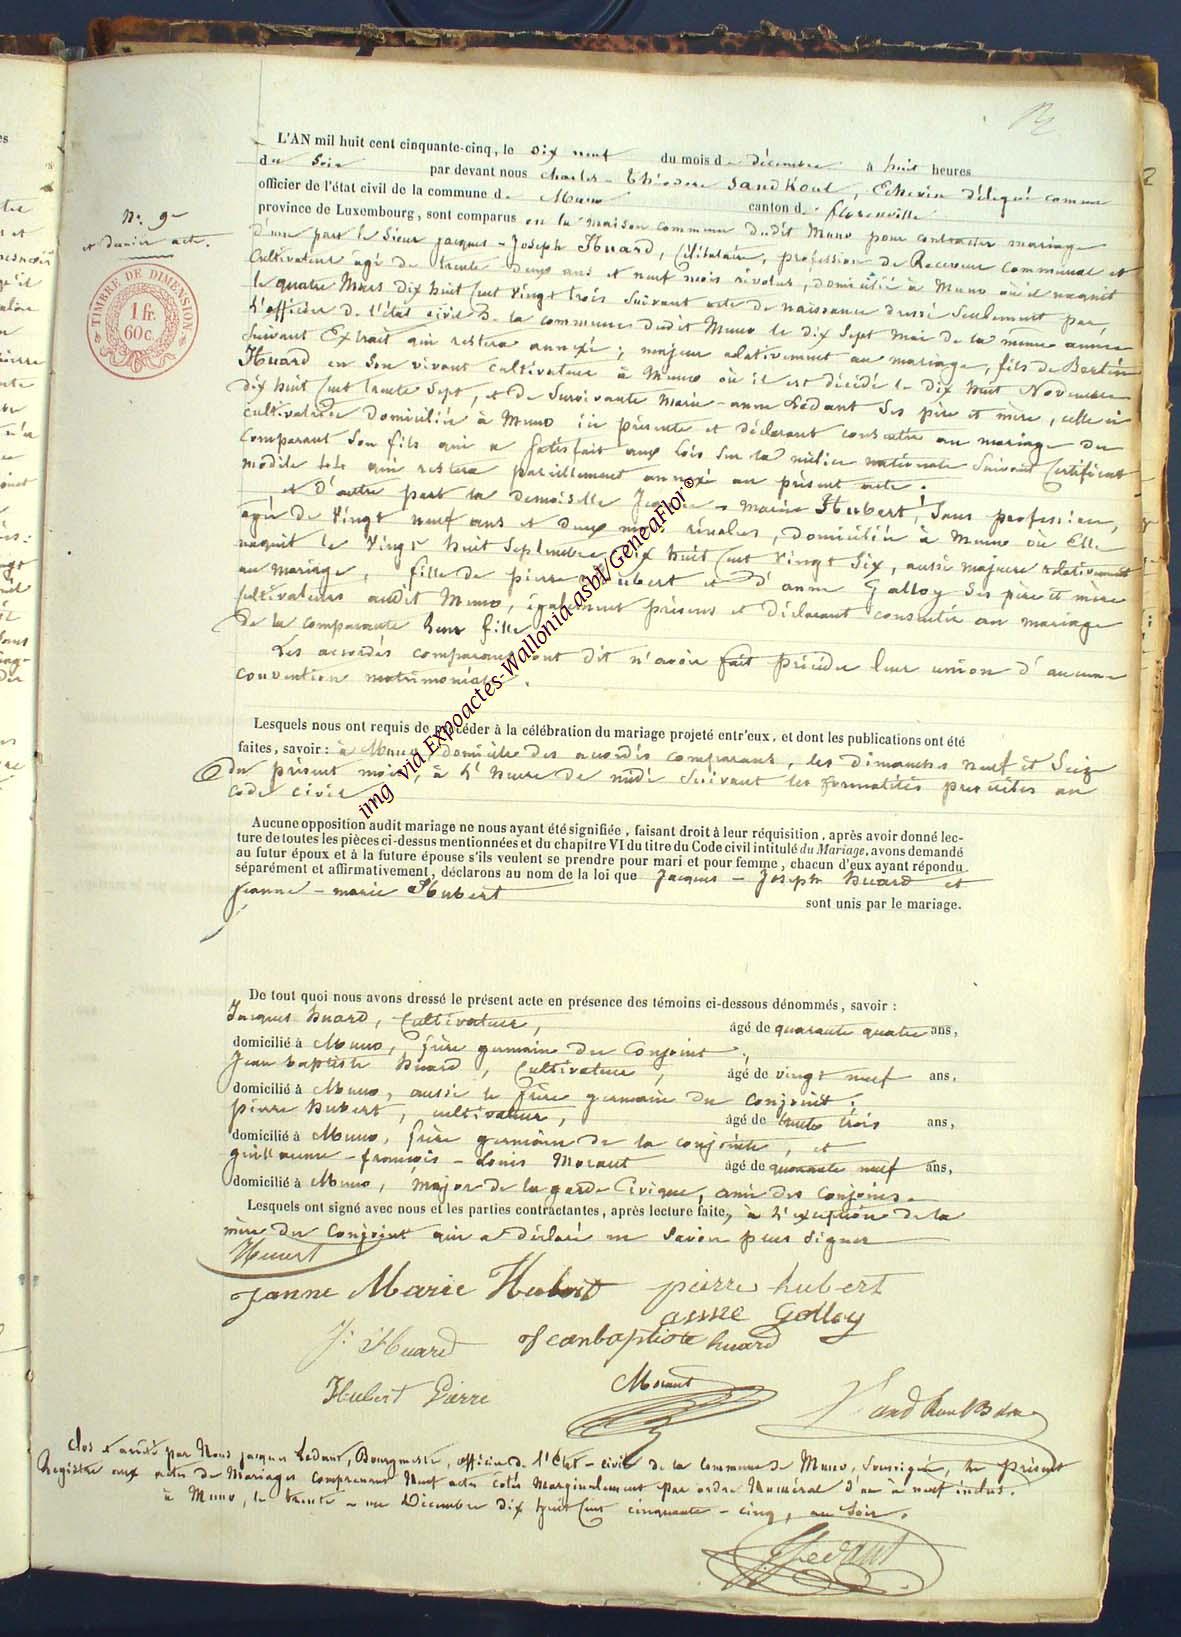 N.º 9e
et dernier acte.
TIMBRE DE DIMENSION
1 fr.
60c.
L'AN mil huit cent cinquante-cinq, le dix neuf du mois de décembre à huit heures
du soir par devant nous Charles-Théodore Sandkoul, Echevin délégué comme
officier de l'état civil de la commune de Muno canton de florenville
province de Luxembourg, sont comparus en la maison commune dudit Muno pour contracter mariage
D'une part le Sieur jacques-Joseph Huard, Célibataire, profession de Receveur communal et
Cultivateur agé de trente deux ans et neuf mois révolus, domicilié à Muno où il naquit
le quatre Mars dix huit Cent Vingt trois suivant acte de naissance dressé seulement par
L'officier de l'état civil de la commune dudit Muno le dix Sept Mai de la même année
suivant Extrait qui restera annexé; majeur relativement au mariage, fils de Bertin
Huard en son vivant cultivateur à Muno où il est décédé le dix huit Novembre
dix huit Cent trente Sept, et de Survivante Marie-anne Lédant Ses père et mère, celle ci
cultivatrice domiciliée à Muno ici présente et déclarant consentir au mariage du
Comparant Son fils qui a satisfait aux lois sur la milice nationale Suivant Certificat
modèle qui restera pareillement annexé au présent acte.
et D'autre part la demoiselle Jeanne-Marie Hubert, Sans profession,
agée de Vingt neuf ans et deux mois révolus, domiciliée à Muno où Elle
naquit le Vingt huit Septembre dix huit Cent Vingt Six, aussi majeure relativement
au mariage, fille de pierre Hubert et D'anne Galloy Ses père et mère
cultivateurs audit Muno, également présens et déclarant consentir au mariage
de la comparante leur fille
Les accordés comparans ont dit n'avoir fait précéder leur union d'aucune
convention matrimoniale.
Lesquels nous ont requis de procéder à la célébration du mariage projeté entr'eux, et dont les publications ont été
faites, savoir: à Muno domicile des accordés comparans, les dimanches neuf et Seize
du présent mois, à L'heure de midi Suivant les formalités prescrites au
code civil
Aucune opposition audit mariage ne nous ayant été signifiée, faisant droit à leur réquisition, après avoir donné lec-
ture de toutes les pièces ci-dessus mentionnées et du chapitre VI du titre du Code civil intitulé du Mariage, avons demandé
au futur époux et à la future épouse s'ils veulent se prendre pour mari et pour femme, chacun d'eux ayant répondu
séparément et affirmativement, déclarons au nom de la loi que Jacques-Joseph huard et
Jeanne-marie Hubert sont unis par le mariage.
De tout quoi nous avons dressé le présent acte en présence des témoins ci-dessous dénommés, savoir:
Jacques huard, Cultivateur, âgé de quarante quatre ans,
domicilié à Muno, frère germain du Conjoint,
Jean baptiste huard, Cultivateur, âgé de vingt neuf ans,
domicilié à Muno, aussi le frère germain du conjoint.
pierre hubert, cultivateur, âgé de trente trois ans,
domicilié à Muno, frère germain de la conjointe, et
guillaume-françois-Louis Moraut âgé de quarante neuf ans,
domicilié à Muno, major de la garde Civique, ami des conjoins.
Lesquels ont signé avec nous et les parties contractantes, après lecture faite, à L'exception de la
mère du Conjoint qui a déclaré ne savoir plus signer
Huart
Janne Marie Hubert pierre hubert
anne Golloy
J. Huard Jeanbaptiste huard
Hubert Pierre Moraut Sandkoul
Clos et arrêté par Nous jacques Ledant, Bourgmestre, officier de l'Etat-civil de la Commune de Muno, Soussigné, le présent
Registre aux actes de Mariages comprenant Neuf actes cotés Marginalement par ordre Numéral d'un à neuf inclus.
à Muno, le trente-un Décembre dix huit Cent cinquante-cinq, au Soir.
J Ledant
img via Expoactes-Wallonia asbl/GeneaFloi©